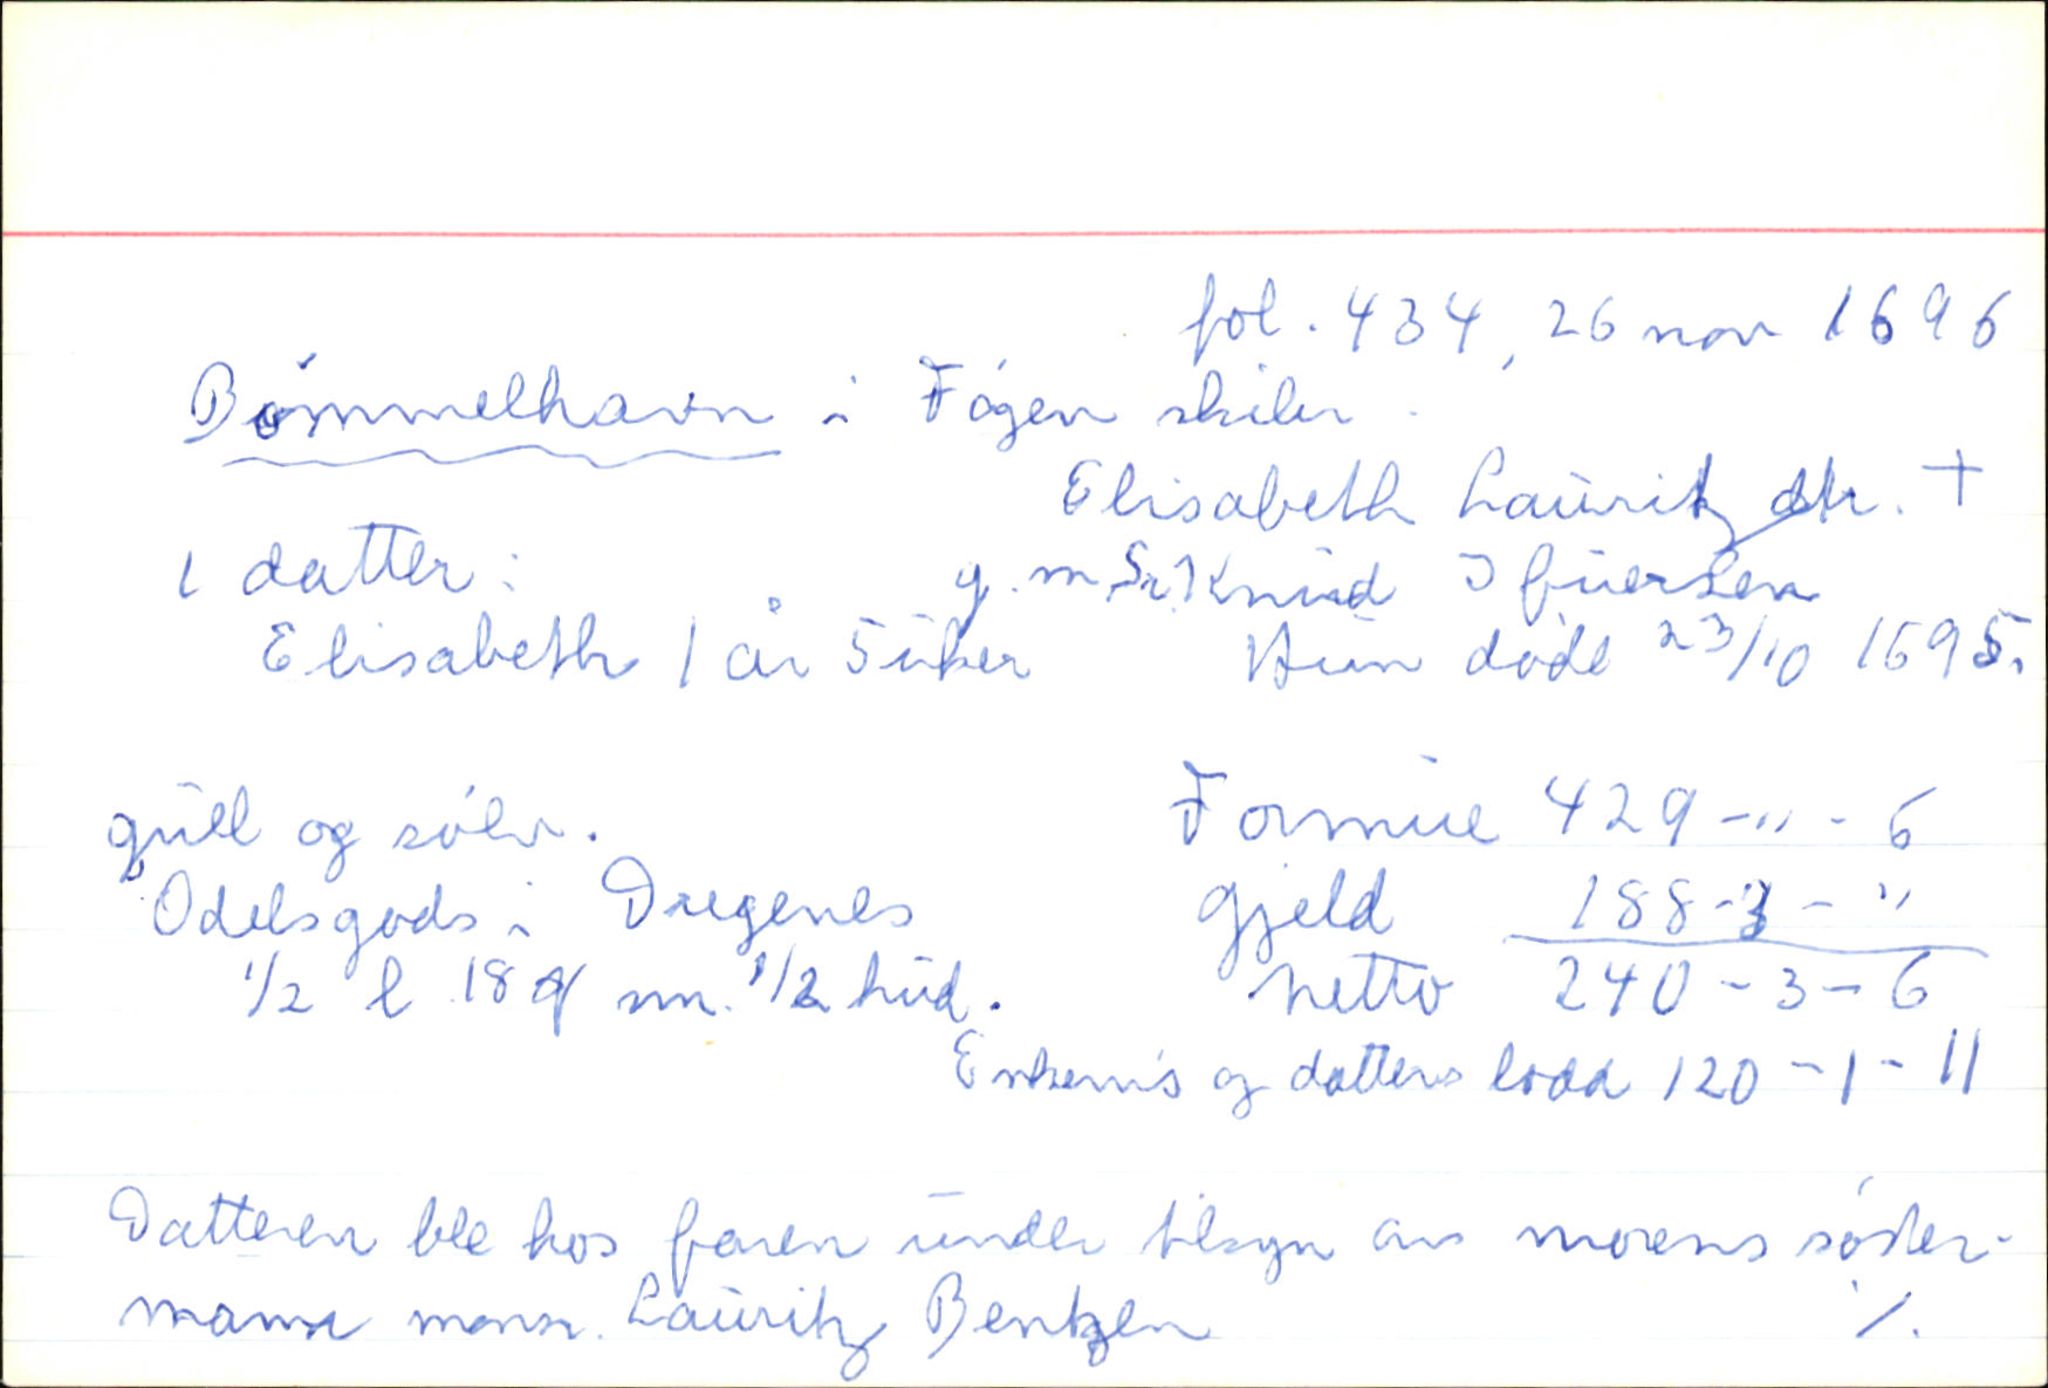 fol. 434, 26 nov 1696
Bømmelhavn i Føgen skibr.
Elisabeth Lauritz dtr. +
1 datter: g. m. Sr. Knud Ifuersen
Elisabeth 1 år 5 uker Hun døde 23/10 1695.
gull og sølv. Formue 429-"-6
Odelsgods i Dregenes Gjeld 188-3-"
1/2 l 18 m. 1/2 hud. Netto 240-3-6
Enkem's og datters lodd 120-1-11
Datteren ble hos faren under tilsyn av morens søster-
mann monsr. Lauritz Bentzen ·/.